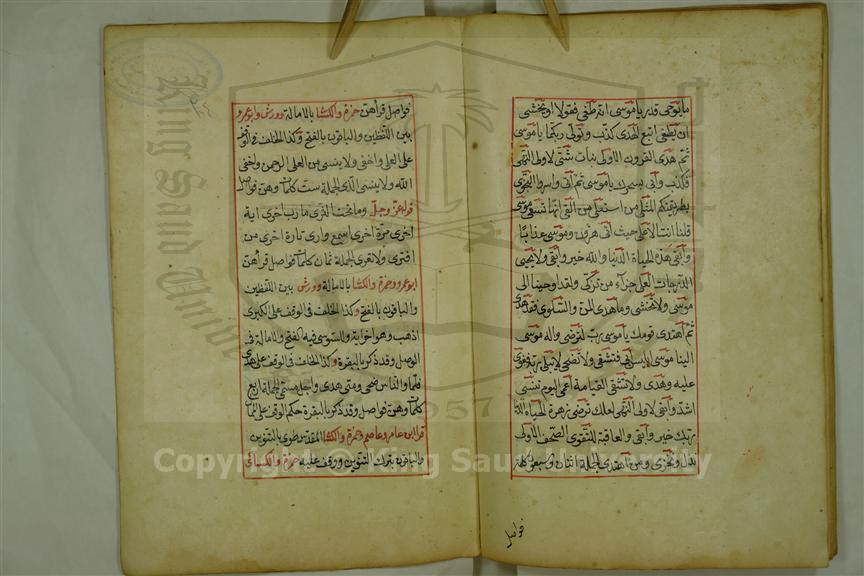 ما يوحى قدر يا موسى انه طغى فقولا او يخشى
ان يطغى اتبع الهدى كذب وتولى ربكما يا موسى
ثم هدى القرون الاولى نبات شتى لاولى النهى
فكذب وابى بسحرك يا موسى ثم اتى واسروا النجوى
بطريقتكم المثلى من استعلى من القى انها تسعى موسى
قلنا انت الاعلى حيث اتى هرون وموسى عذابا
وابقى هذه الحياة الدنيا والله خير وابقى ولا يحيى
الدرجات العلى جزاء من تزكى ولقد اوحينا الى
موسى ولا تخشى وما هدى المن والسلوى فقد هوى
ثم اهتدى قومك يا موسى رب لترضى واله موسى
الينا موسى ابليس ابى فتشقى ولا تضحى لا يبلى ربه فغوى
عليه وهدى ولا يشقى القيامة اعمى اليوم تنسى
اشد وابقى لاولى النهى لعلك ترضى زهرة الحياة الدنيا
ربك خير وابقى والعاقبة للتقوى الصحف الاولى
نذل ونخزى ومن اهتدى الجملة اثنان وسبعون كلمة
فواصل
فواصل قرأهن حمزة والكسا بالامالة وورش وابو عمرو
بين اللفظين والباقون بالفتح وكذا الخلف في الوقف
على العلى واخفى ولا ينسى من العلى الرحمن واخفى
الله ولا ينسى الذى الجملة ست كلمات وهن فواصل
قوله عز وجل وما تحت الثرى مارب اخرى اية
اخرى مرة اخرى اسمع وارى تارة اخرى من
افترى ولا تعرى الجملة ثمان كلمات فواصل قرأهن
ابو عمرو وحمزة والكسا بالامالة وورش بين اللفظين
والباقون بالفتح وكذا الخلف في الوقف على الكبرى
اذهب وهو اخر اية وللسوسى فيه الفتح والامالة في
الوصل وقد ذكر بالبقرة وكذا الخلف في الوقف على هدى
فلما والناس ضحى ومتى هدى واجل مسمى الجملة اربع
كلمات وهن فواصل وقد ذكر بالبقرة حكم الوقف على
قرا ابن عامر وعاصم وحمزة والكسا المقدس طوى بالتنوين
والباقون بترك التنوين ووقف عليه حمزة والكسائى
King Saud University
1957
Copyright © King Saud University